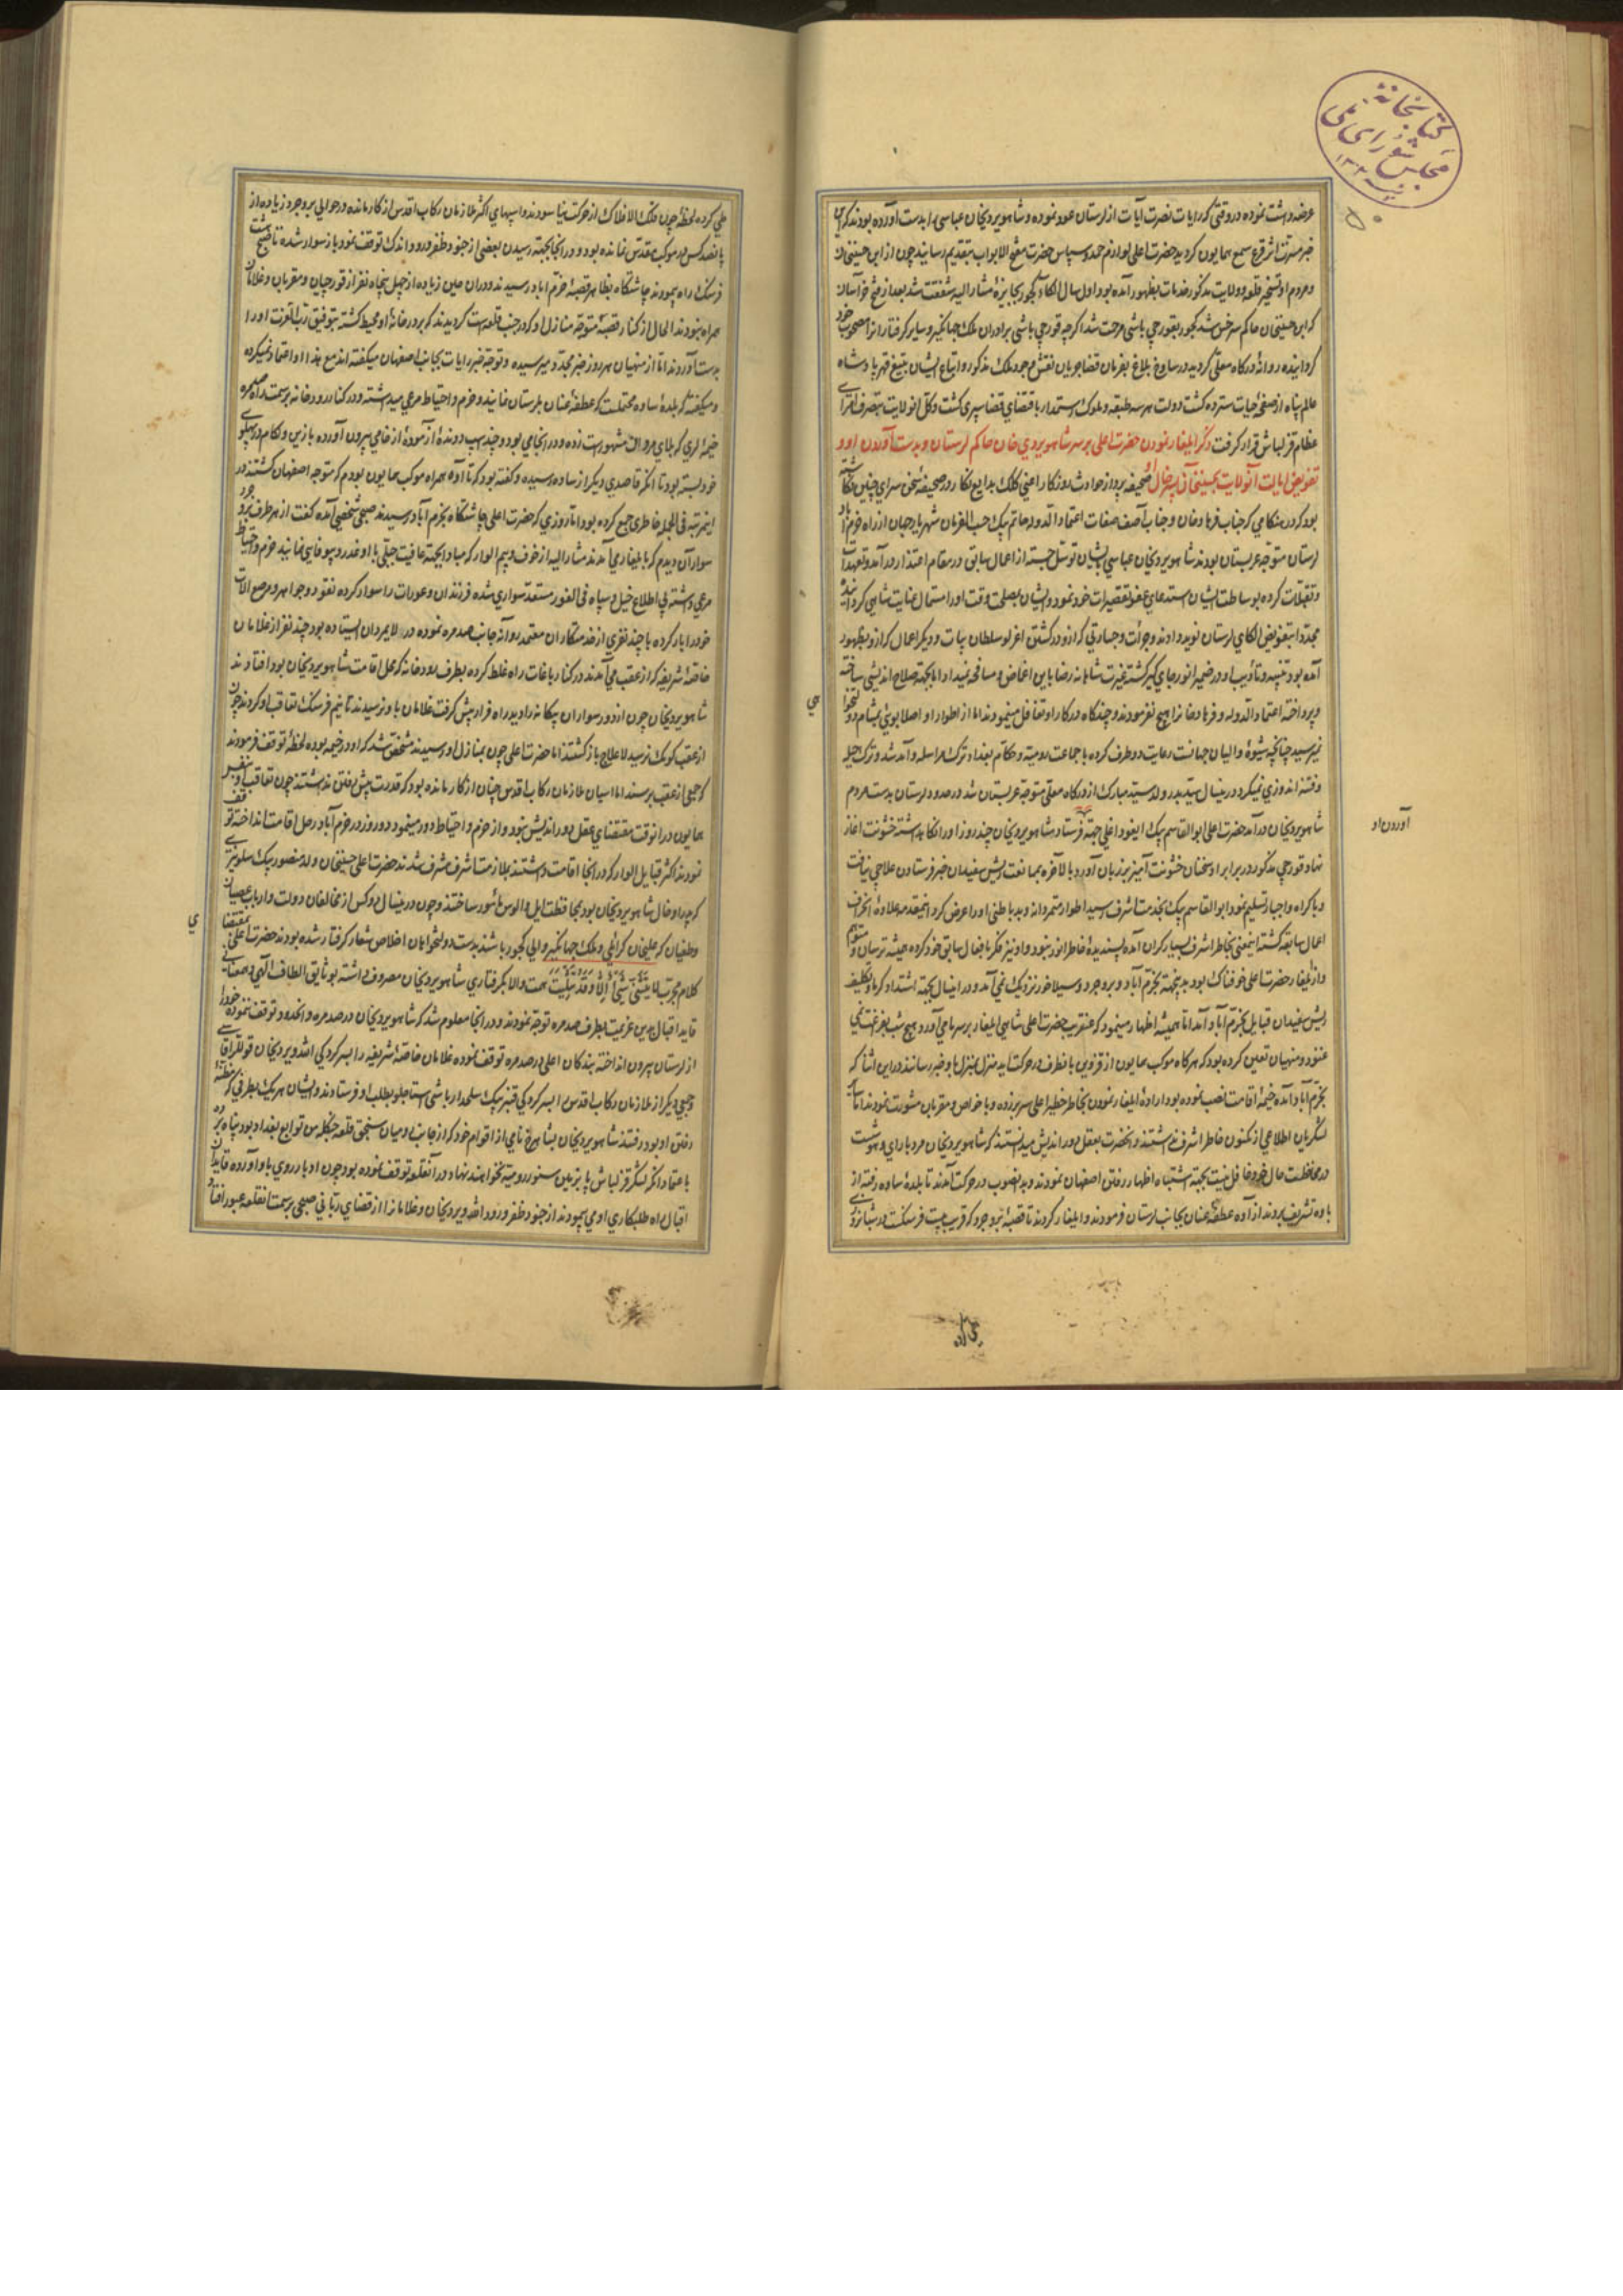 کتابخانهٔ
مجلس شورای ملی
عرضه داشت نموده در وقتی که رایات نصرت آیات از لرستان عود نموده و شاهویردیخان عباسی را بدست آورده بودند که این
خبر مسرت اثر قرع سمع همایون گردید حضرت اعلی لوازم حمد و سپاس حضرت مفتح الابواب بتقدیم رسانید چون از ابن حسینخان
و مردم او تسخیر قلعه و ولایت مذکور خدمات بظهور آمده بود اول سال الکاء کجور بجایزهٔ مشار الیه شفقت شد بعد از فتح خراسان
که ابن حسینخان حاکم سرخس شد کجور بقورچی باشی مرحمت شد اگرچه قورچی باشی برادران ملک جهانگیر و سایر گرفتاران را مصحوب خود
گردانیده روانهٔ درگاه معلی گردید در ساوخ بلاغ بفرمان قضا جریان نقش وجود ملک مذکور و اتباع ایشان بتیغ قهر پادشاه
عالم پناه از صفحهٔ حیات سترده گشت دولت هر سه طبقه و ملوک رستمدار باقتضای قضا سپری گشت و کل آنولایت بتصرف امرای
عظام قزلباش قرار گرفت ذکر ایلغار نمودن حضرت اعلی بر سر شاهویردی خان حاکم لرستان و بدست آوردن او و
تفویض ایالت آنولایت بحسینخان پسر خال او صحیفه پرداز حوادث روزگار اعنی کلک بدایع نگار در صحیفه سخن سرای چنین نگاشته
بود که در هنگامی که جناب فرهاد خان و جناب آصف صفات اعتماد الدوله حاتم بیک حسب الفرمان شهریار جهان از راه خرم آباد
لرستان متوجه عربستان بودند شاهویردیخان عباسی بایشان توسل جسته از اعمال سابق در مقام اعتذار درآمد و تعهدات
و تقبلات کرده بوساطت ایشان استدعای عفو تقصیرات خود نمود و ایشان بمصلحت وقت او را مستمال عنایت شاهی گردانیده
مجددا بتفویض الکای لرستان نوید دادند و جرأت و جسارتی که از او در کشتن اغرلو سلطان بیات و دیگر اعمال که از او بظهور
آمده بود تنبیه و تأدیب او در ضمیر انور جای گیر گشته غیرت شاهانه رضا باین اغماض و مسامحه نمیداد اما بجهة صلاح اندیشی ساخته
و پرداخته اعتماد الدوله و فرهاد خان را هیچ نفرمودند و چندگاه در کار او تغافل مینمودند اما از اطوار او اصلا بوئی بمشام دولتخواهی
نمیرسید چنانچه شیوهٔ والیان جهانست رعایت دو طرف کرده با جماعت رومیه و حکام بغداد ترک مراسله و آمد شد و ترک حیله
و فتنه اندوزی نمیکرد درینسال سید بدر ولد سید مبارک از درگاه معلی متوجه عربستان شد در حدود لرستان بدست مردم
شاهویردیخان درآمد حضرت اعلی ابوالقاسم بیک ایغود اغلی جهة فرستاد شاهویردیخان چند روز او را نگاه داشته خشونت آغاز
آوردن او
نهاد قورچی مذکور در برابر او سخنان خشونت آمیز بر زبان آورد بالآخره بممانعت ریش سفیدان خبر فرستادن علاجی نیافت
و باکراه و اجبار تسلیم نمود ابوالقاسم بیک بخدمت اشرف رسید اطوار متمردانه و بد باطنی او را عرض کرد اینمقدمه علاوهٔ انحراف
اعمال سابقه گشته اینمعنی بخاطر اشرف بسیار گران آمده پسندیدهٔ خاطر انور نبود و او نیز فکر نافعال سابق خود کرده همیشه ترسان و متوهم
و از ایلغار حضرت اعلی خوفناک بود بدینجهة بخرم آباد و بروجرد و سیلاخور نزدیک نمی آمد و در اینسال بجهة اشتداد گرما و تکلیف
ریش سفیدان قبایل بخرم آباد آمد اما همیشه اظهار مینمود که عنقریب حضرت اعلی شاهی ایلغار بر سر ما می آورد و هیچ شب بفراغت نمی
غنود و منهیان تعیین کرده بود که هرگاه موکب همایون از قزوین بانطرف در حرکت آید منزل بمنزل باو خبر رسانند در این اثنا که
بخرم آباد آمده خیمهٔ اقامت نصب نموده بود ارادهٔ ایلغار نمودن بخاطر خطیر اعلی سر بر زده و با خواص و مقربان مشورت نمودند اما سایر
لشکریان اطلاعی از مکنون خاطر اشرف نداشتند و انحضرت بعقل دور اندیش میدانستند که شاهویردیخان مرد با رای و هوشست
در محافظت حال خود غافل نیست بجهة اشتباه اظهار رفتن اصفهان نمودند و بدانصوب در حرکت آمدند تا بلدهٔ ساوه رفته از
باوه تشریف بردند از آوه عطفه عنان بجانب لرستان فرمودند و ایلغار کردند تا قصبهٔ بروجرد که قریب بیست فرسنگست در شبانروزی
طی کرده
طی کرده لحظهٔ چون فلک الافلاک از حرکت نیاسودند و اسبهای اکثر ملازمان رکاب اقدس از کار مانده در حوالی بروجرد زیاده از
پانصد کس در موکب مقدس نمانده بود و در انجا بجهة رسیدن بعضی از جنود ظفر ورود اندک توقف نمود باز سوار شده تا صبح هشت
فرسنگ راه پیمودند چاشتگاه بظاهر قصبهٔ خرم اباد رسیدند و در ان حین زیاده از چهل پنجاه نفر از قورچیان و مقربان و غلامان
همراه نبودند الحال از کنار قصبه متوجه منازل او که در جنب قلعه است گردیدند که بر در خانهٔ او محیط گشته بتوفیق رب العزت او را
بدست آورند اما از منهیان هر روز خبر مجدد میرسیده و توجه خبر رایات بجانب اصفهان میگفته اند مع هذا او اعتماد نمیکرده
و میگفته که بلدهٔ ساوه محتملست که عطفهٔ عنان بلرستان نمایند و حزم و احتیاط مرعی میداشته و در کنار رودخانه بر سمت راه صیمره
خیمهٔ لری که بلای مروال مشهور است زده و در انجا می بود و چند اسپ دوندهٔ آزمودهٔ از خامی بیرون آورده با زین و لکام در پهلوی
خود بسته بود تا انکه قاصدی دیگر از ساوه رسیده و گفته بود که تا آوه همراه موکب همایون بودم که متوجه اصفهان گشتند در
اینمرتبه فی الجمله خاطری جمع کرده بود اتا روزی که حضرت اعلی چاشتگاه بخرم آباد رسیدند صبحی شخصی آمده گفت از طرف بروجرد
سواران دیدم که بایلغار می آمدند مشار الیه از خوف و بیم الوار که مبادا بجهة عافیت جبلی با او غدر و بیوفائی نمایند حزم و احتیاط
مرعی داشته بی اطلاع خیل و سپاه فی الفور مستعد سواری شده فرزندان و عورات را سوار کرده نقود و جواهر و مرصع آلات
خود را بار کرده با چند نفری از خدمتکاران معتمد روانهٔ جانب صدمره نموده در لایمردان ایستاده بود چند نفر از غلامان
خاصهٔ شریفه که از عقب می آمدند در کنار باغات راه غلط کرده بطرف رودخانه که محل اقامت شاهویردیخان بود افتادند
شاهویردیخان چون از دور سواران بیگانه را دید راه فرار پیش گرفت غلامان باو نرسیدند تا نیم فرسنگ تعاقب او کردند چون
از عقب کومک نرسید لاعلاج باز گشتند اما حضرت اعلی چون بمنازل او رسیدند مشخص شد که او در خیمه بوده لحظهٔ توقف فرمودند
که جمعی از عقب برسند اما اسبان ملازمان رکاب اقدس چنان از کار مانده بود که قدرت پیش رفتن نداشتند چون تعاقب او بنفس
همایون در انوقت مقتضای عقل دور اندیش نبود و از حزم و احتیاط دور مینمود دو روز در خرم آباد رحل اقامت انداخته توقف
نمودند اکثر قبایل الوار که در انجا اقامت داشتند بملازمت اشرف مشرف شدند حضرت اعلی حسینخان ولد منصور بیک سلویزی
که پدر او خال شاهویردیخان بود بمحافظت ایل و الوس مأمور ساختند و چون درینسال دو کس از مخالفان دولت و ارباب عصیان
و طغیان که علیخان کرایلی و ملک جهانگیر والی کجور باشند بدست دولتخواهان اخلاص شعار گرفتار شده بودند حضرت اعلی بمقتضا
کلام مجرب لا یثنی شیء الا و قد یثلث همت والا بگرفتاری شاهویردیخان مصروف داشته بوثایق الطاف الهی و مصفای
قاید اقبال بدین عزیمت بطرف صدمره توجه نمودند و در انجا معلوم شد که شاهویردیخان در صدمره و انحدود توقف ننموده خود را
از لرستان بیرون انداخته بندگان اعلی در صدمره توقف نموده غلامان خاصهٔ شریفه را بسرکردگی الله ویردیخان قوللر آقاسی
و جمعی دیگر از ملازمان رکاب اقدس را بسرکردگی قنبر بیک سلحدار باشی استاجلو بطلب او فرستادند و ایشان هر یک بطرفی که مظنهٔ
رفتن او بود رفتند شاهویردیخان بشاهرخ نامی از اقوام خود که از جانب رومیان سنجق قلعه جنگله من توابع بغداد بود پناه برد
باعتماد انکه لشکر قزلباش پا بزمین سنور رومیه نخواهند نهاد در آنقلعه توقف نموده بود چون ادبار روی باو آورده قایدان
اقبال راه طلبکاری او می پیمودند از جنود ظفر ورود الله ویردیخان و غلامان را از قضای ربانی صبحی بر سمت انقلعه عبور افتاد